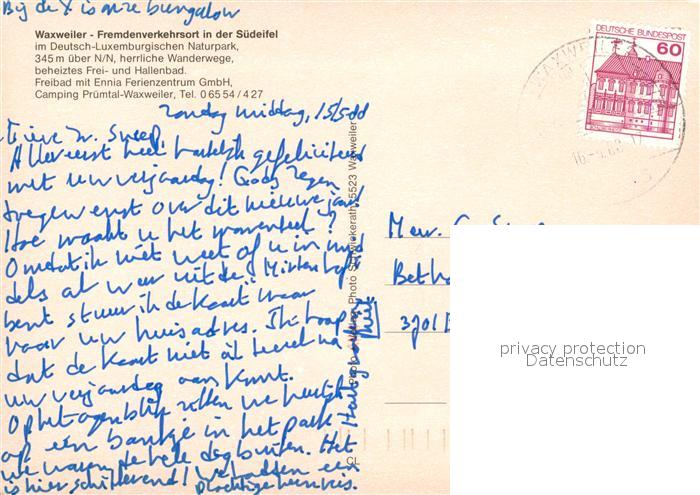 Bij de X is onze bungalow
Waxweiler - Fremdenverkehrsort in der Südeifel
im Deutsch-Luxemburgischen Naturpark,
345 m über N/N, herrliche Wanderwege,
beheiztes Frei- und Hallenbad.
Freibad mit Ennia Ferienzentrum GmbH,
Camping Prümtal-Waxweiler, Tel. 0 65 54 / 4 27
DEUTSCHE BUNDESPOST
60
zondag middag, 15/5-88
Lieve zr. Sweep,
Allereerst heel hartelijk gefeliciteerd
met uw verjaardag! Gods zegen
toegewenst over dit nieuwe jaar!
Hoe maakt u het momenteel?
Omdat ik niet weet of u in mid
dels al weer uit de
bent stuur ik de kaart maar
naar uw huisadres. Ik hoop
dat de kaart niet ál teveel na
uw verjaardag aan komt.
Op het ogenblik zitten we heerlijk
op een bankje in het park.
we waren de hele dag buiten. Het
is hier schitterend! We hadden een
prachtige heenreis.
Mevr.
3701
5523 Waxweiler
privacy protection
Datenschutz